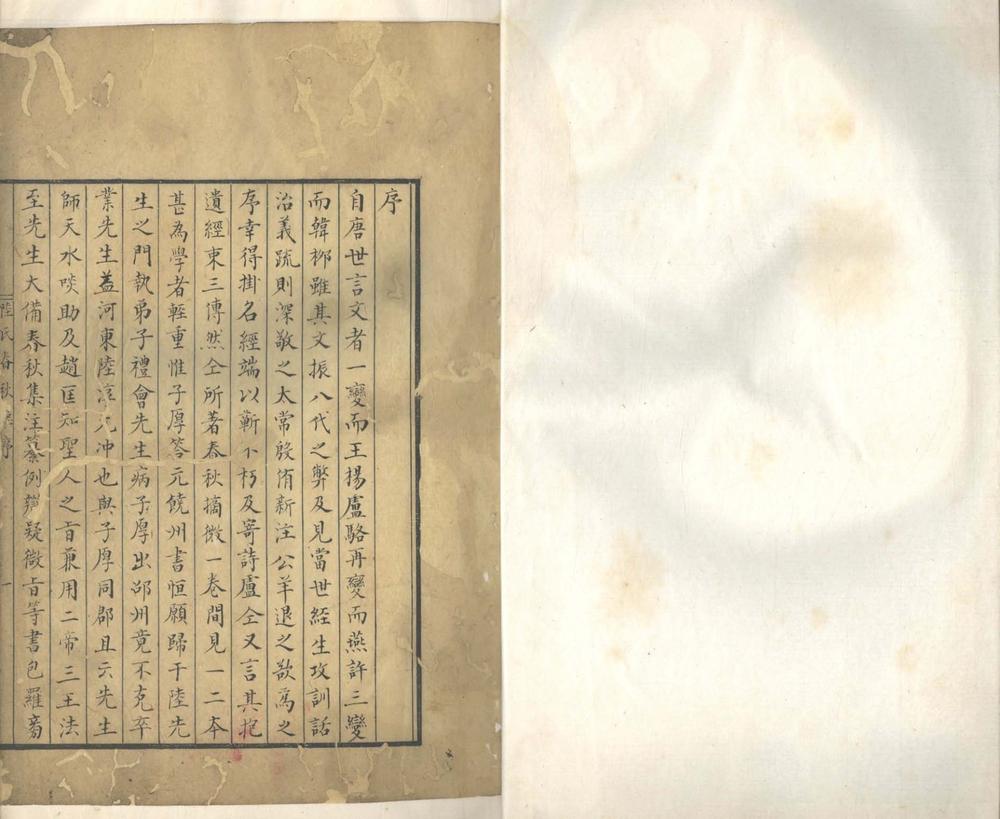 序
自唐世言文者一變而王揚盧駱再變而燕許三變
而韓栁雖其文振八代之弊及見當世経生攻訓話
治義䟽則深敬之太常殷侑新注公羊退之欲爲之
序幸得掛名經端以蘄不朽及寄詩盧仝又言其抱
遺經束三傳然仝所著春秋摘微一卷間見一二本
甚為學者輕重惟子厚答元饒州書恒願歸于陸先
生之門執弟子禮會先生病子厚出邵州竟不克卒
業先生蓋河東陸淳元冲也與子厚同郡且云先生
師天水啖助及趙匡知聖人之旨兼用二帝三王法
至先生大備春秋集注纂例辨疑微旨等書包羅旁
陸氏春秋 序 一